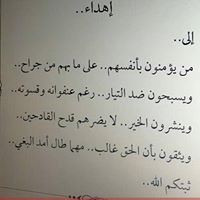 إهداء..
إلى..
من يؤمنون بأنفسهم.. على ما بهم من جراح..
ويسبحون ضد التيار.. رغم عنفوانه وقسوته..
وينشرون الخير.. لا يضرهم قدح القادحين..
ويثقون بأن الحق غالب.. مهما طال أمد البغي..
ثبتكم الله..